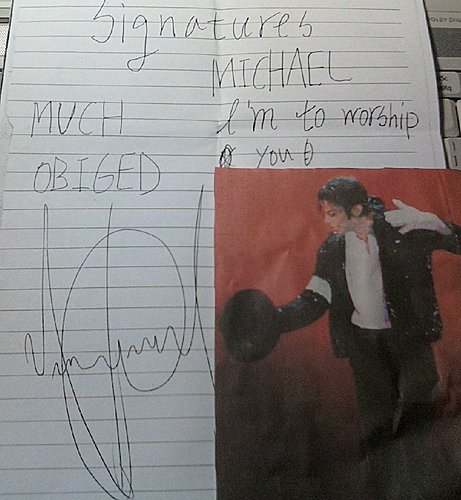 Signatures
MICHAEL
MUCH
I'm to worship
OBIGED
you